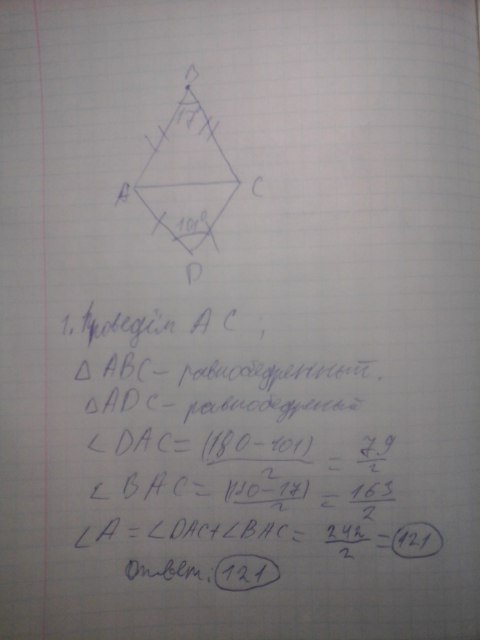 B
17
A
C
101°
D
1. Проведём AC;
△ ABC – равнобедренный.
△ADC – равнобедреный
∠ DAC = (180-101)/2 = 79/2
∠ BAC = (180-17)/2 = 163/2
∠A = ∠DAC+∠BAC = 242/2 = 121
Ответ: 121